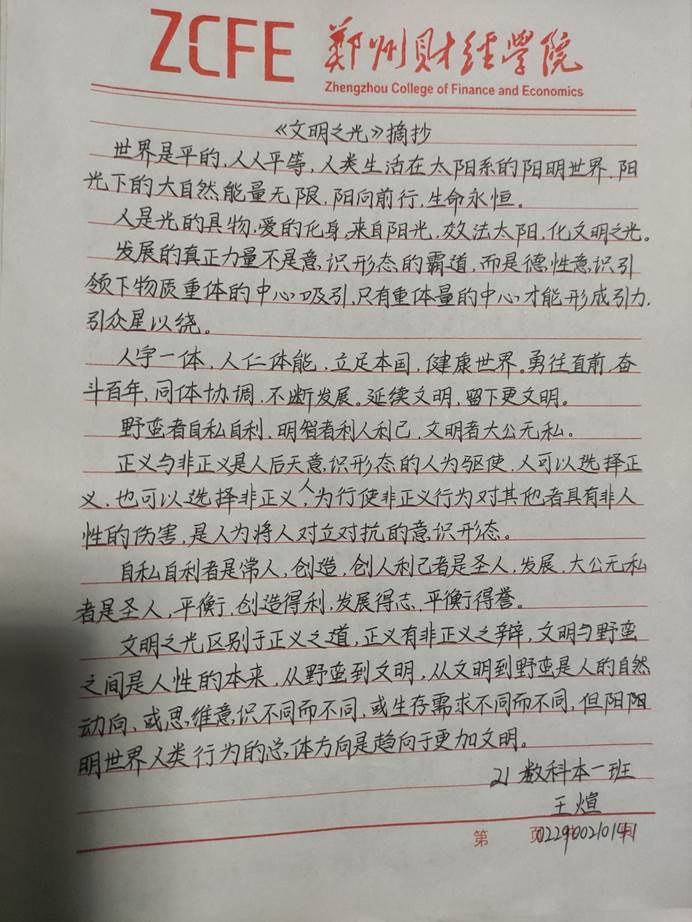 ZCFE 郑州财经学院
Zhengzhou College of Finance and Economics
《文明之光》摘抄
世界是平的,人人平等,人类生活在太阳系的阳明世界,阳
光下的大自然能量无限,阳向前行,生命永恒。
人是光的具物,爱的化身,来自阳光,效法太阳,化文明之光。
发展的真正力量不是意识形态的霸道,而是德性意识引
领下物质重体的中心吸引,只有重体量的中心才能形成引力,
引众星以绕。
人宇一体,人仁体能,立足本国,健康世界。勇往直前,奋
斗百年,同体协调,不断发展。延续文明,留下更文明。
野蛮者自私自利,明智者利人利己,文明者大公无私。
正义与非正义是人后天意识形态的人为驱使,人可以选择正
义,也可以选择非正义,人为行使非正义行为对其他者具有非人
性的伤害,是人为将人对立对抗的意识形态。
自私自利者是常人,创造,创人利己者是圣人,发展,大公无私
者是圣人,平衡,创造得利,发展得志,平衡得誉。
文明之光区别于正义之道,正义有非正义之辩,文明与野蛮
之间是人性的本来,从野蛮到文明,从文明到野蛮是人的自然
动向、或思维意识不同而不同,或生存需求不同而不同,但阳阳
明世界人类行为的总体方向是趋向于更加文明。
21数科本一班
王煊
第 页